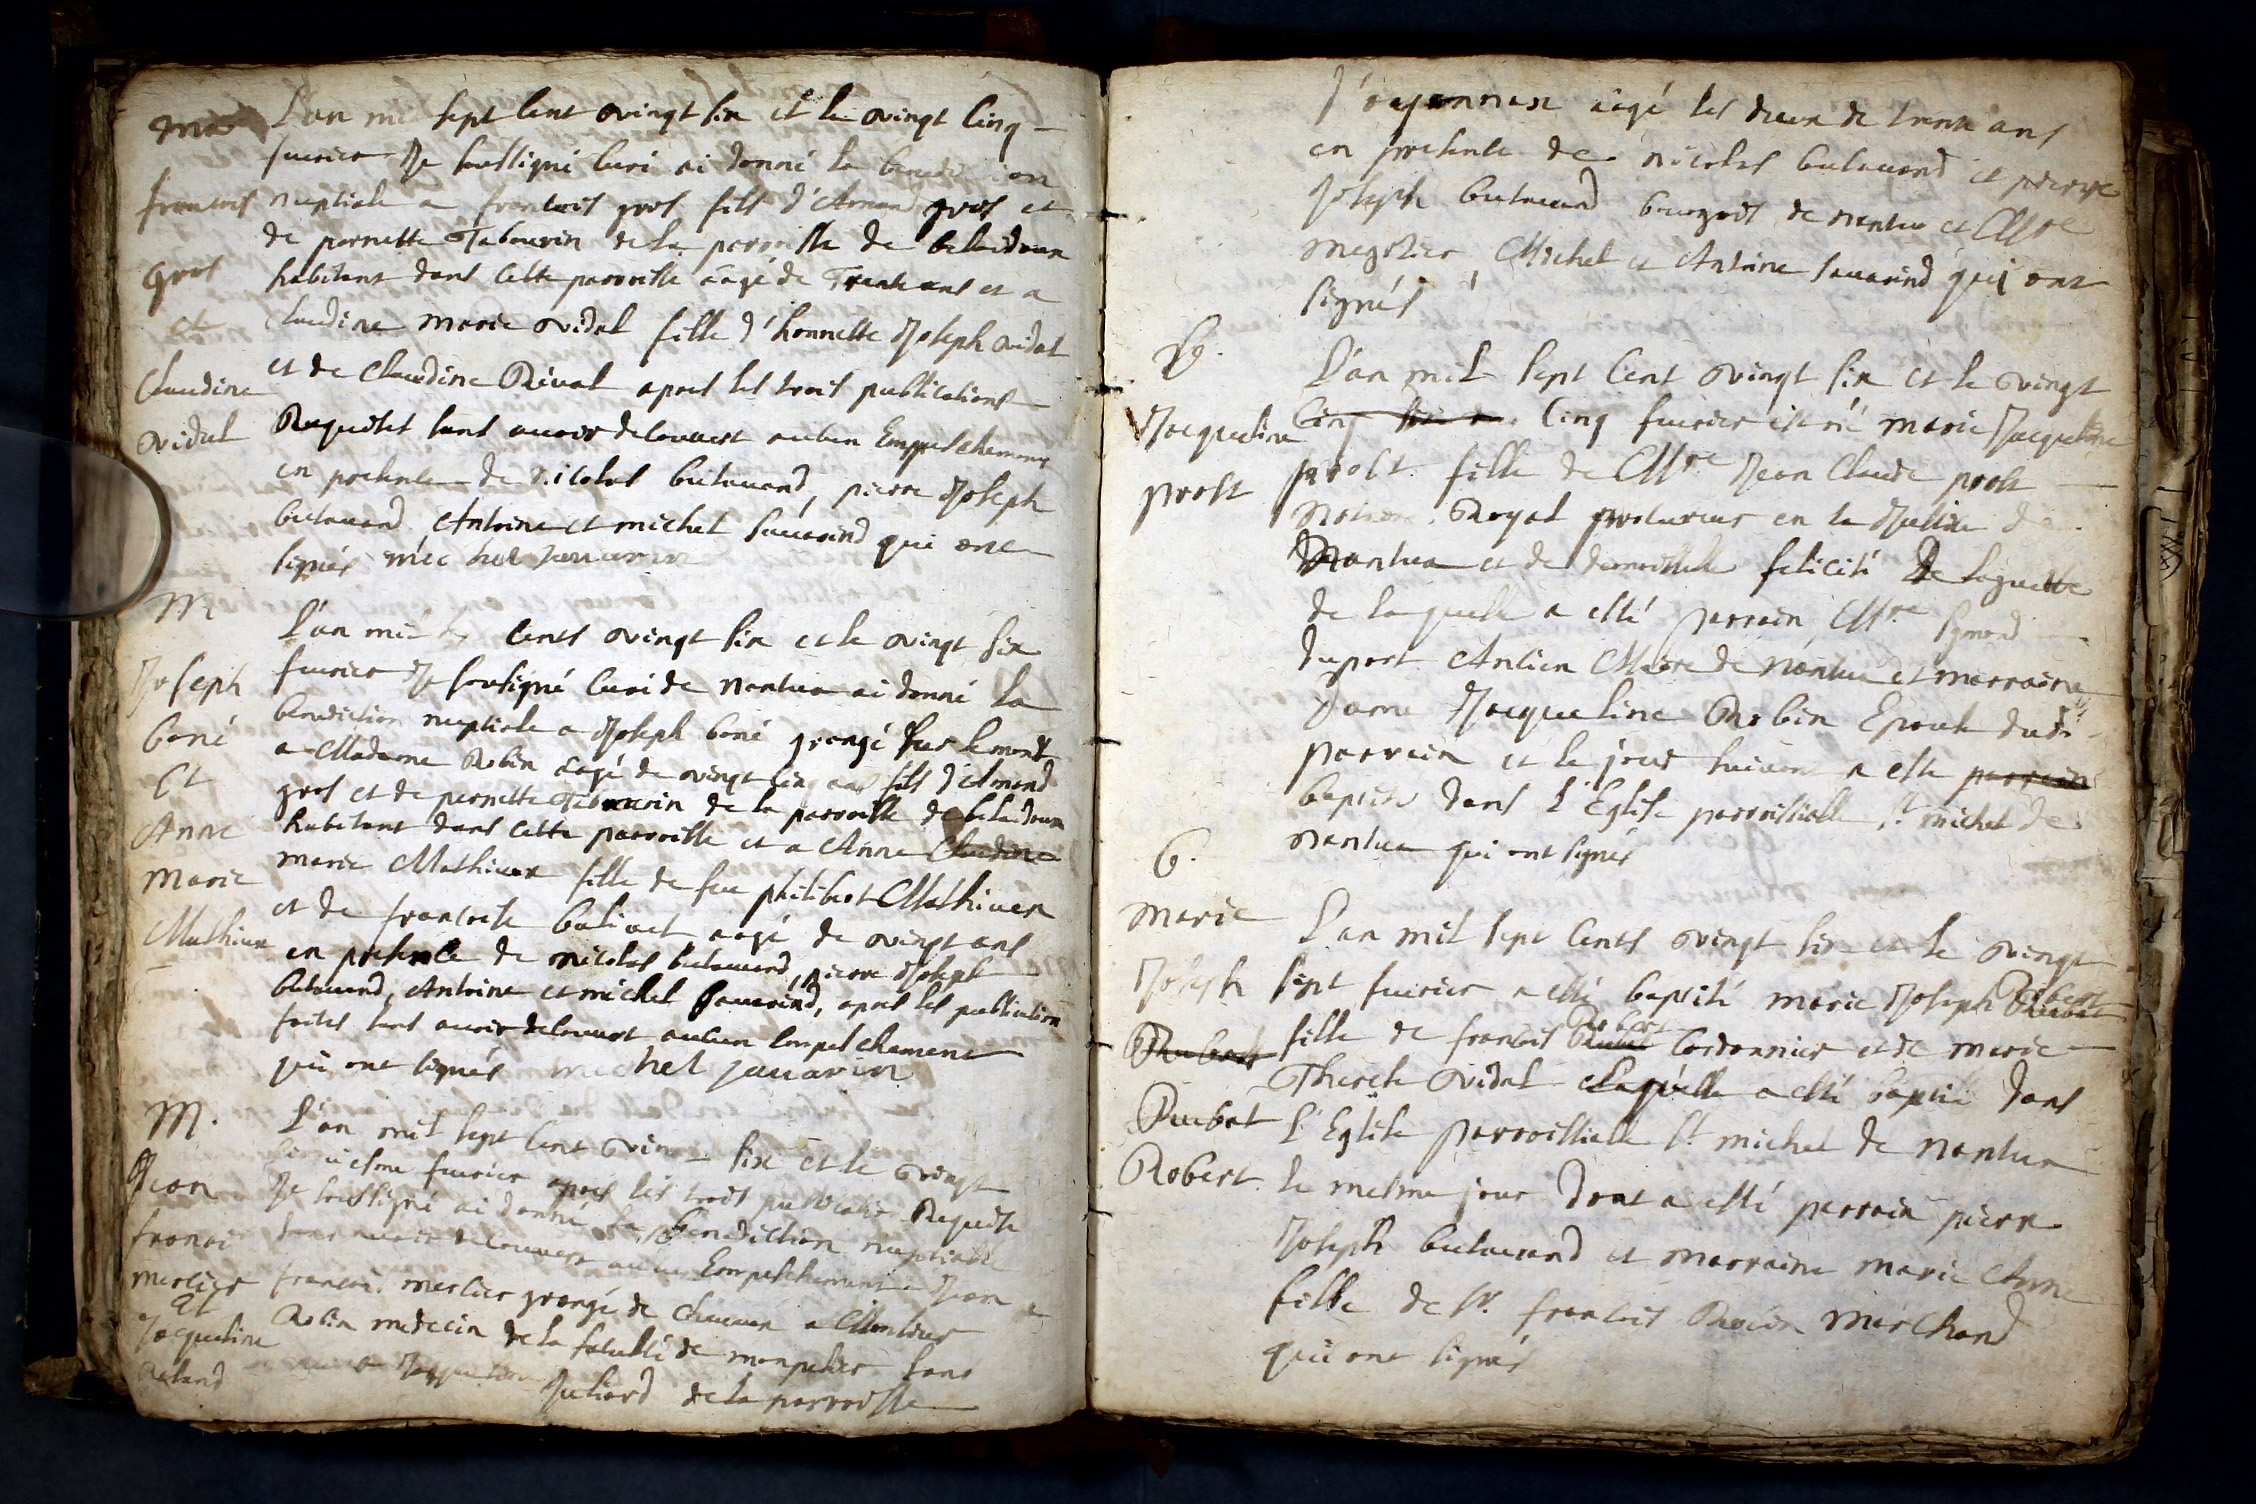 ma
françois
gros
et
Claudine
vidal
L'an mil sept cent vingt six et le vingt cinq
fevrier Je soussigné Curé ai donné la benediction
nuptiale a francois gros fils d'Amand gros et
de pernette Tabourin de la parroisse de
habitant dans cette parroisse aagé de Trente ans et a
claudine marie vidal fille d'honnette Joseph vidal
et de Claudine Rival apres les trois publications
Requises sans avoir decouvert aucun Empeschement
en presence de nicolas butavand, pierre Joseph
butavand, Antoine et michel sauarind qui ont
signés michel sauarin
M
Joseph
boné
Et
Anne
marie
Mathieux
L'an mil cents vingt six et le vingt six
fevrier Je sousigné Curé de nantua ai donné la
benediction nuptiale a Joseph boné grangé sur le mont
a Madame Robin aagé de vingt cinq ans fils d'Amand
gros et de pernette Tabourin de la parroisse de
habitant dans cette parroisse et a Anne Claudine
marie Mathieux fille de feu philibert Mathieux
et de francoise baliact aagé de vingt ans
en presence de nicolas butavand, pierre Joseph
butavand, Antoine et michel sauarind, apres les publication
faites sans avoir decouvert aucun Empeschement
qui ont signés michel sauarin
M.
Jean
françoi
mercier
et
Jacqueline
Juliand
L'an mil sept cent vingt six et le vingt
fevrier apres les trois publicatio Requise
Je soussigné ai donné la benediction nuptiale
sans avoir decouvert aucun Empeschement a Jean
francoi mercier grangé de a Monsieur
Robin medecin de la faculté de monpelier dans
Juliard de la parroisse
d'oyonnax aagé les deux de trente ans
en presence de nicolas butavand et pierre
Joseph butavand bourgois de nantua et Msre
Michel et Antoine sauarind qui ont
signés
B.
Jacqueline
prost
L'an mil sept Cent vingt six et le vingt
cinq Cinq fevrier est né marie Jacqueline
prost fille de Msre Jean Claude prost
Notaire Royal procureur en la Justice de
Nantua et de demoiselle felicité De
de laquelle a esté parrain Msre
duport Antien Maire de nantua et marraine
Dame Jacqueline Robin Epouse dudt
parrain et le jour suivant a este parrain
baptisé dans l'Eglise parroissialle st michel de
nantua qui ont signés
b.
marie
Joseph
Rubat
Robert
L'an mil sept Cents vingt six et le vingt
sept fevrier a esté baptisé marie Joseph Robert
fille de francois Robert Cordonnier et de marie
Therese vidal laquelle a esté baptisé dans
l'Eglise parroissialle st michel de nantua
le mesme jour dont a esté parrain pierre
Joseph butavand et marraine marie Anne
fille de sr. francois Robin marchand
qui ont signés